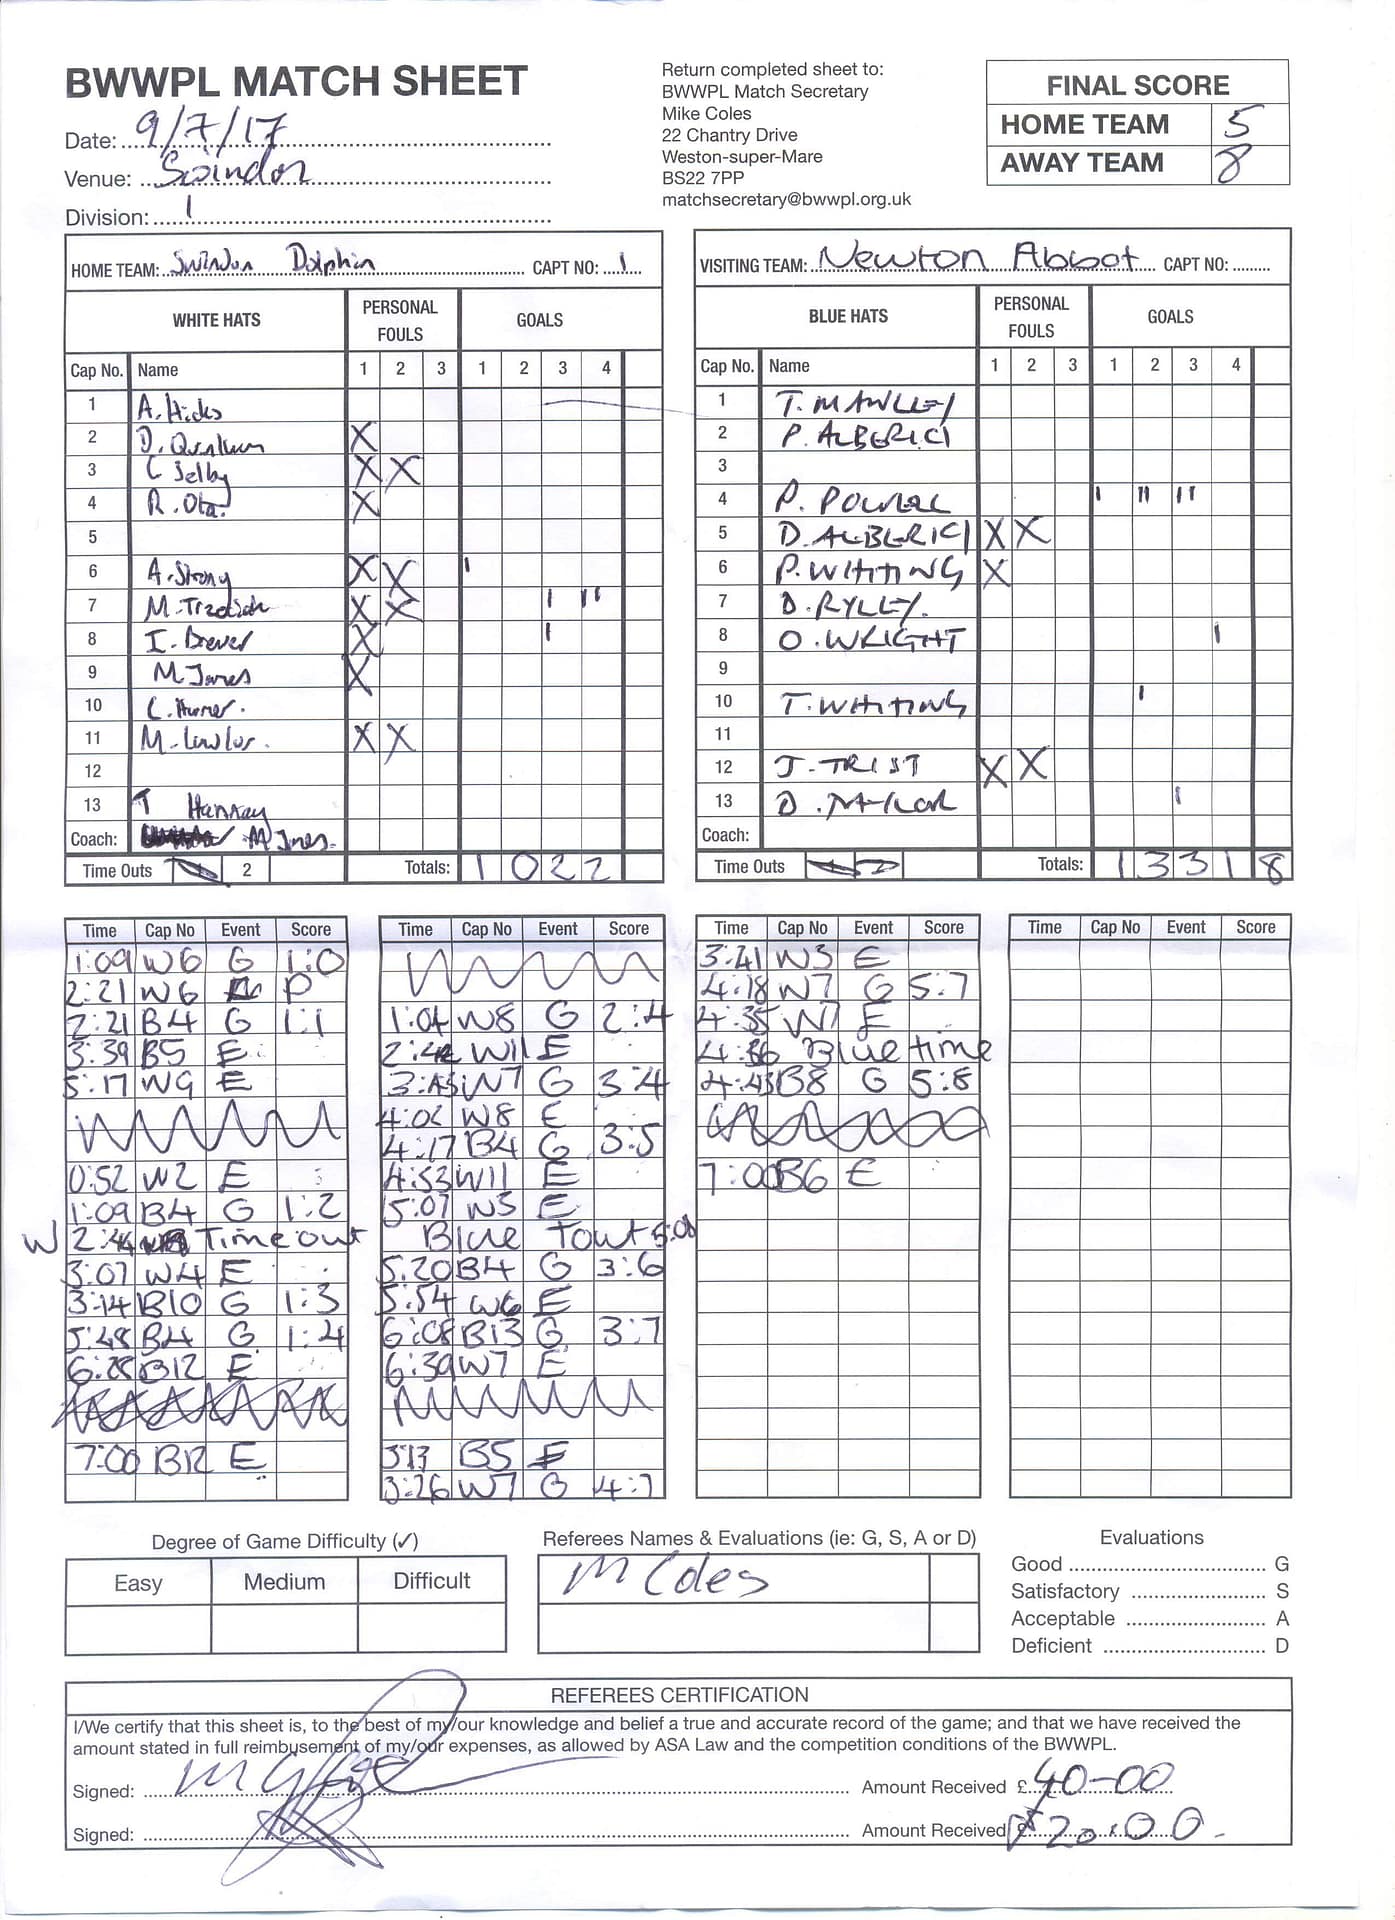 BWWPL MATCH SHEET
Date: 9/7/17
Venue: Swindon
Division: 1
Return completed sheet to:
BWWPL Match Secretary
Mike Coles
22 Chantry Drive
Weston-super-Mare
BS22 7PP
matchsecretary@bwwpl.org.uk
FINAL SCORE
HOME TEAM 5
AWAY TEAM 8
HOME TEAM: Swindon Dolphin CAPT NO: 1
WHITE HATS PERSONAL FOULS GOALS
Cap No. Name 1 2 3 1 2 3 4
1 A. Hicks
2 D. X
3 C Selby X X
4 R. Ota. X
5
6 A. Strong X X I
7 M. X X I II
8 I. Brewer X I
9 M Jones X
10 C.
11 M. Lawlor. X X
12
13 T Hankay
Coach: M Jones.
Time Outs 2 Totals: 1 0 2 2
VISITING TEAM: Newton Abbot CAPT NO:
BLUE HATS PERSONAL FOULS GOALS
Cap No. Name 1 2 3 1 2 3 4
1 T. MAWLLEY
2 P. ALBERICI
3
4 P. POWELL I II II
5 D. ALBERICI X X
6 P. WHITING X
7 D. RYLLEY.
8 O. WRIGHT I
9
10 T. WHITING I
11
12 J. TRIST X X
13 D. I
Coach:
Time Outs Totals: 1 3 3 1 8
Time Cap No Event Score
1:09 W6 G 1:0
2:21 W6 P
2:21 B4 G 1:1
3:39 B5 E
5:17 W9 E
0:52 W2 E
1:09 B4 G 1:2
W Time out
3:07 W4 E
3:14 B10 G 1:3
5:48 B4 G 1:4
6:28 B12 E
7:00 B12 E
Time Cap No Event Score
1:04 W8 G 2:4
W11 E
3:45 W7 G 3:4
4:06 W8 E
4:17 B4 G 3:5
4:53 W11 E
5:07 W3 E
Blue Tout 5:08
5:20 B4 G 3:6
5:54 W6 E
6:08 B13 G 3:7
6:39 W7 E
3:13 B5 E
3:26 W7 G 4:7
Time Cap No Event Score
3:41 W3 E
4:18 W7 G 5:7
4:35 W7 E
4:36 Blue time
4:43 B8 G 5:8
7:00 B6 E
Time Cap No Event Score
Degree of Game Difficulty (✓)
Easy Medium Difficult
Referees Names & Evaluations (ie: G, S, A or D)
M Coles
Evaluations
Good G
Satisfactory S
Acceptable A
Deficient D
REFEREES CERTIFICATION
I/We certify that this sheet is, to the best of my/our knowledge and belief a true and accurate record of the game; and that we have received the
amount stated in full reimbusement of my/our expenses, as allowed by ASA Law and the competition conditions of the BWWPL.
Signed: Amount Received £ 40-00
Signed: Amount Received £ 20.00